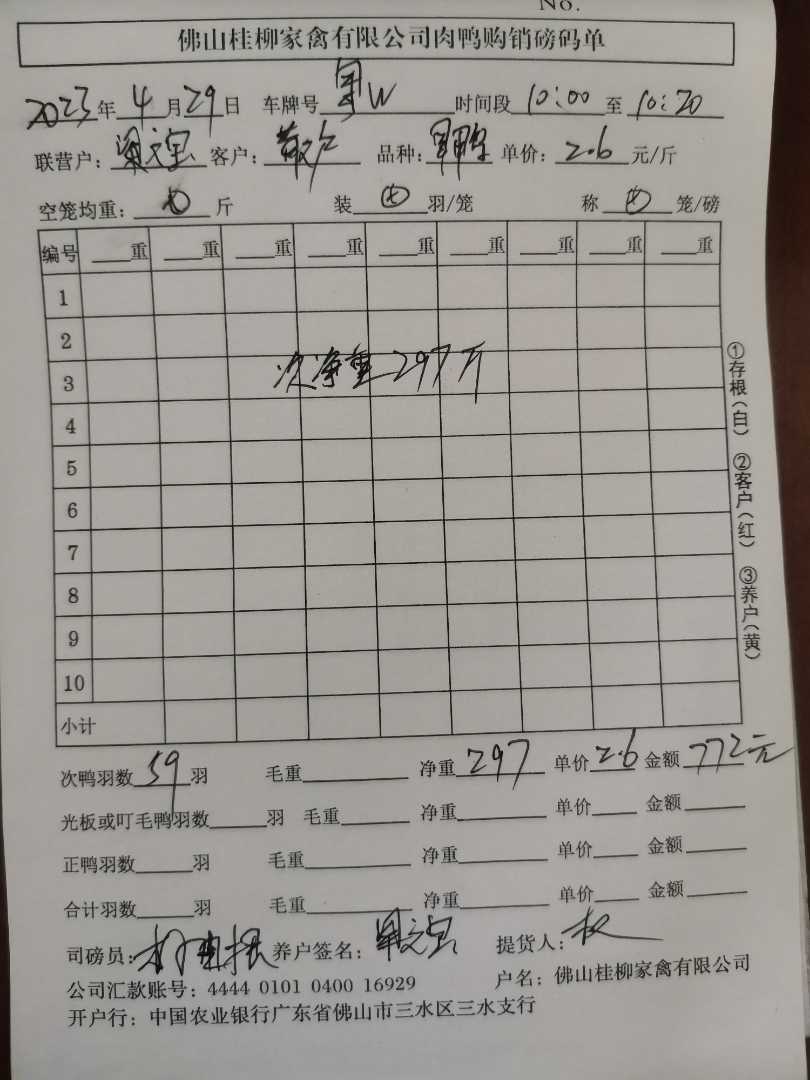 No.
佛山桂柳家禽有限公司肉鸭购销磅码单
2023年 4 月 29 日 车牌号 W 时间段 10:00 至 10:20
联营户： 客户： 品种： 单价：2.6 元/斤
空笼均重： 斤 装 羽/笼 称 笼/磅
编号 重 重 重 重 重 重 重 重 重
1
2
3 次净重297斤
4
5
6
7
8
9
10
小计
①存根(白) ②客户(红) ③养户(黄)
次鸭羽数 59 羽 毛重 净重 297 单价 2.6 金额 772元
光板或叮毛鸭羽数 羽 毛重 净重 单价 金额
正鸭羽数 羽 毛重 净重 单价 金额
合计羽数 羽 毛重 净重 单价 金额
司磅员： 养户签名： 提货人：
公司汇款账号：4444 0101 0400 16929 户名：佛山桂柳家禽有限公司
开户行：中国农业银行广东省佛山市三水区三水支行